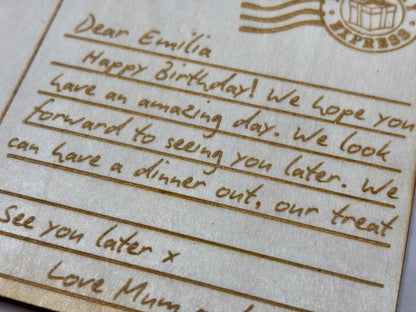 EXPRESS
Dear Emilia
Happy Birthday! We hope you
have an amazing day. We look
forward to seeing you later. We
can have a dinner out, our treat
See you later x
Love Mum